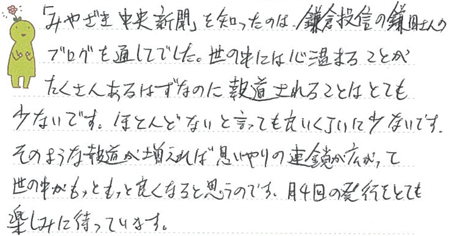 「みやざき中央新聞」を知ったのは、鎌倉投信の鎌田さんの
ブログを通してでした。世の中には心温まることが
たくさんあるはずなのに報道されることはとても
少ないです。ほとんどないと言っても良いくらいに少ないです。
そのような報道が増えれば思いやりの連鎖が広がって
世の中がもっともっと良くなると思うのです。月4回の発行をとても
楽しみに待っています。